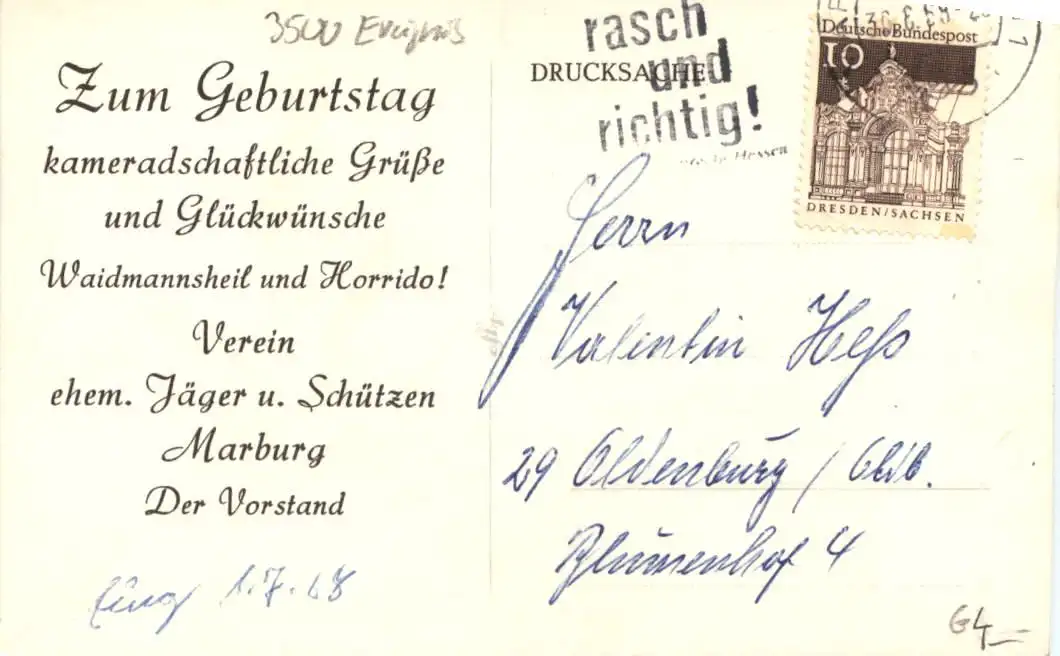 3500 Ereignis
Zum Geburtstag
kameradschaftliche Grüße
und Glückwünsche
Waidmannsheil und Horrido!
Verein
ehem. Jäger u. Schützen
Marburg
Der Vorstand
1.7.68
rasch
und
richtig!
DRUCKSACHE
Hessen
Deutsche Bundespost
10
DRESDEN/SACHSEN
Herrn
Valentin Heß
29 Oldenburg / Oldb.
Blumenhof 4
G4,–